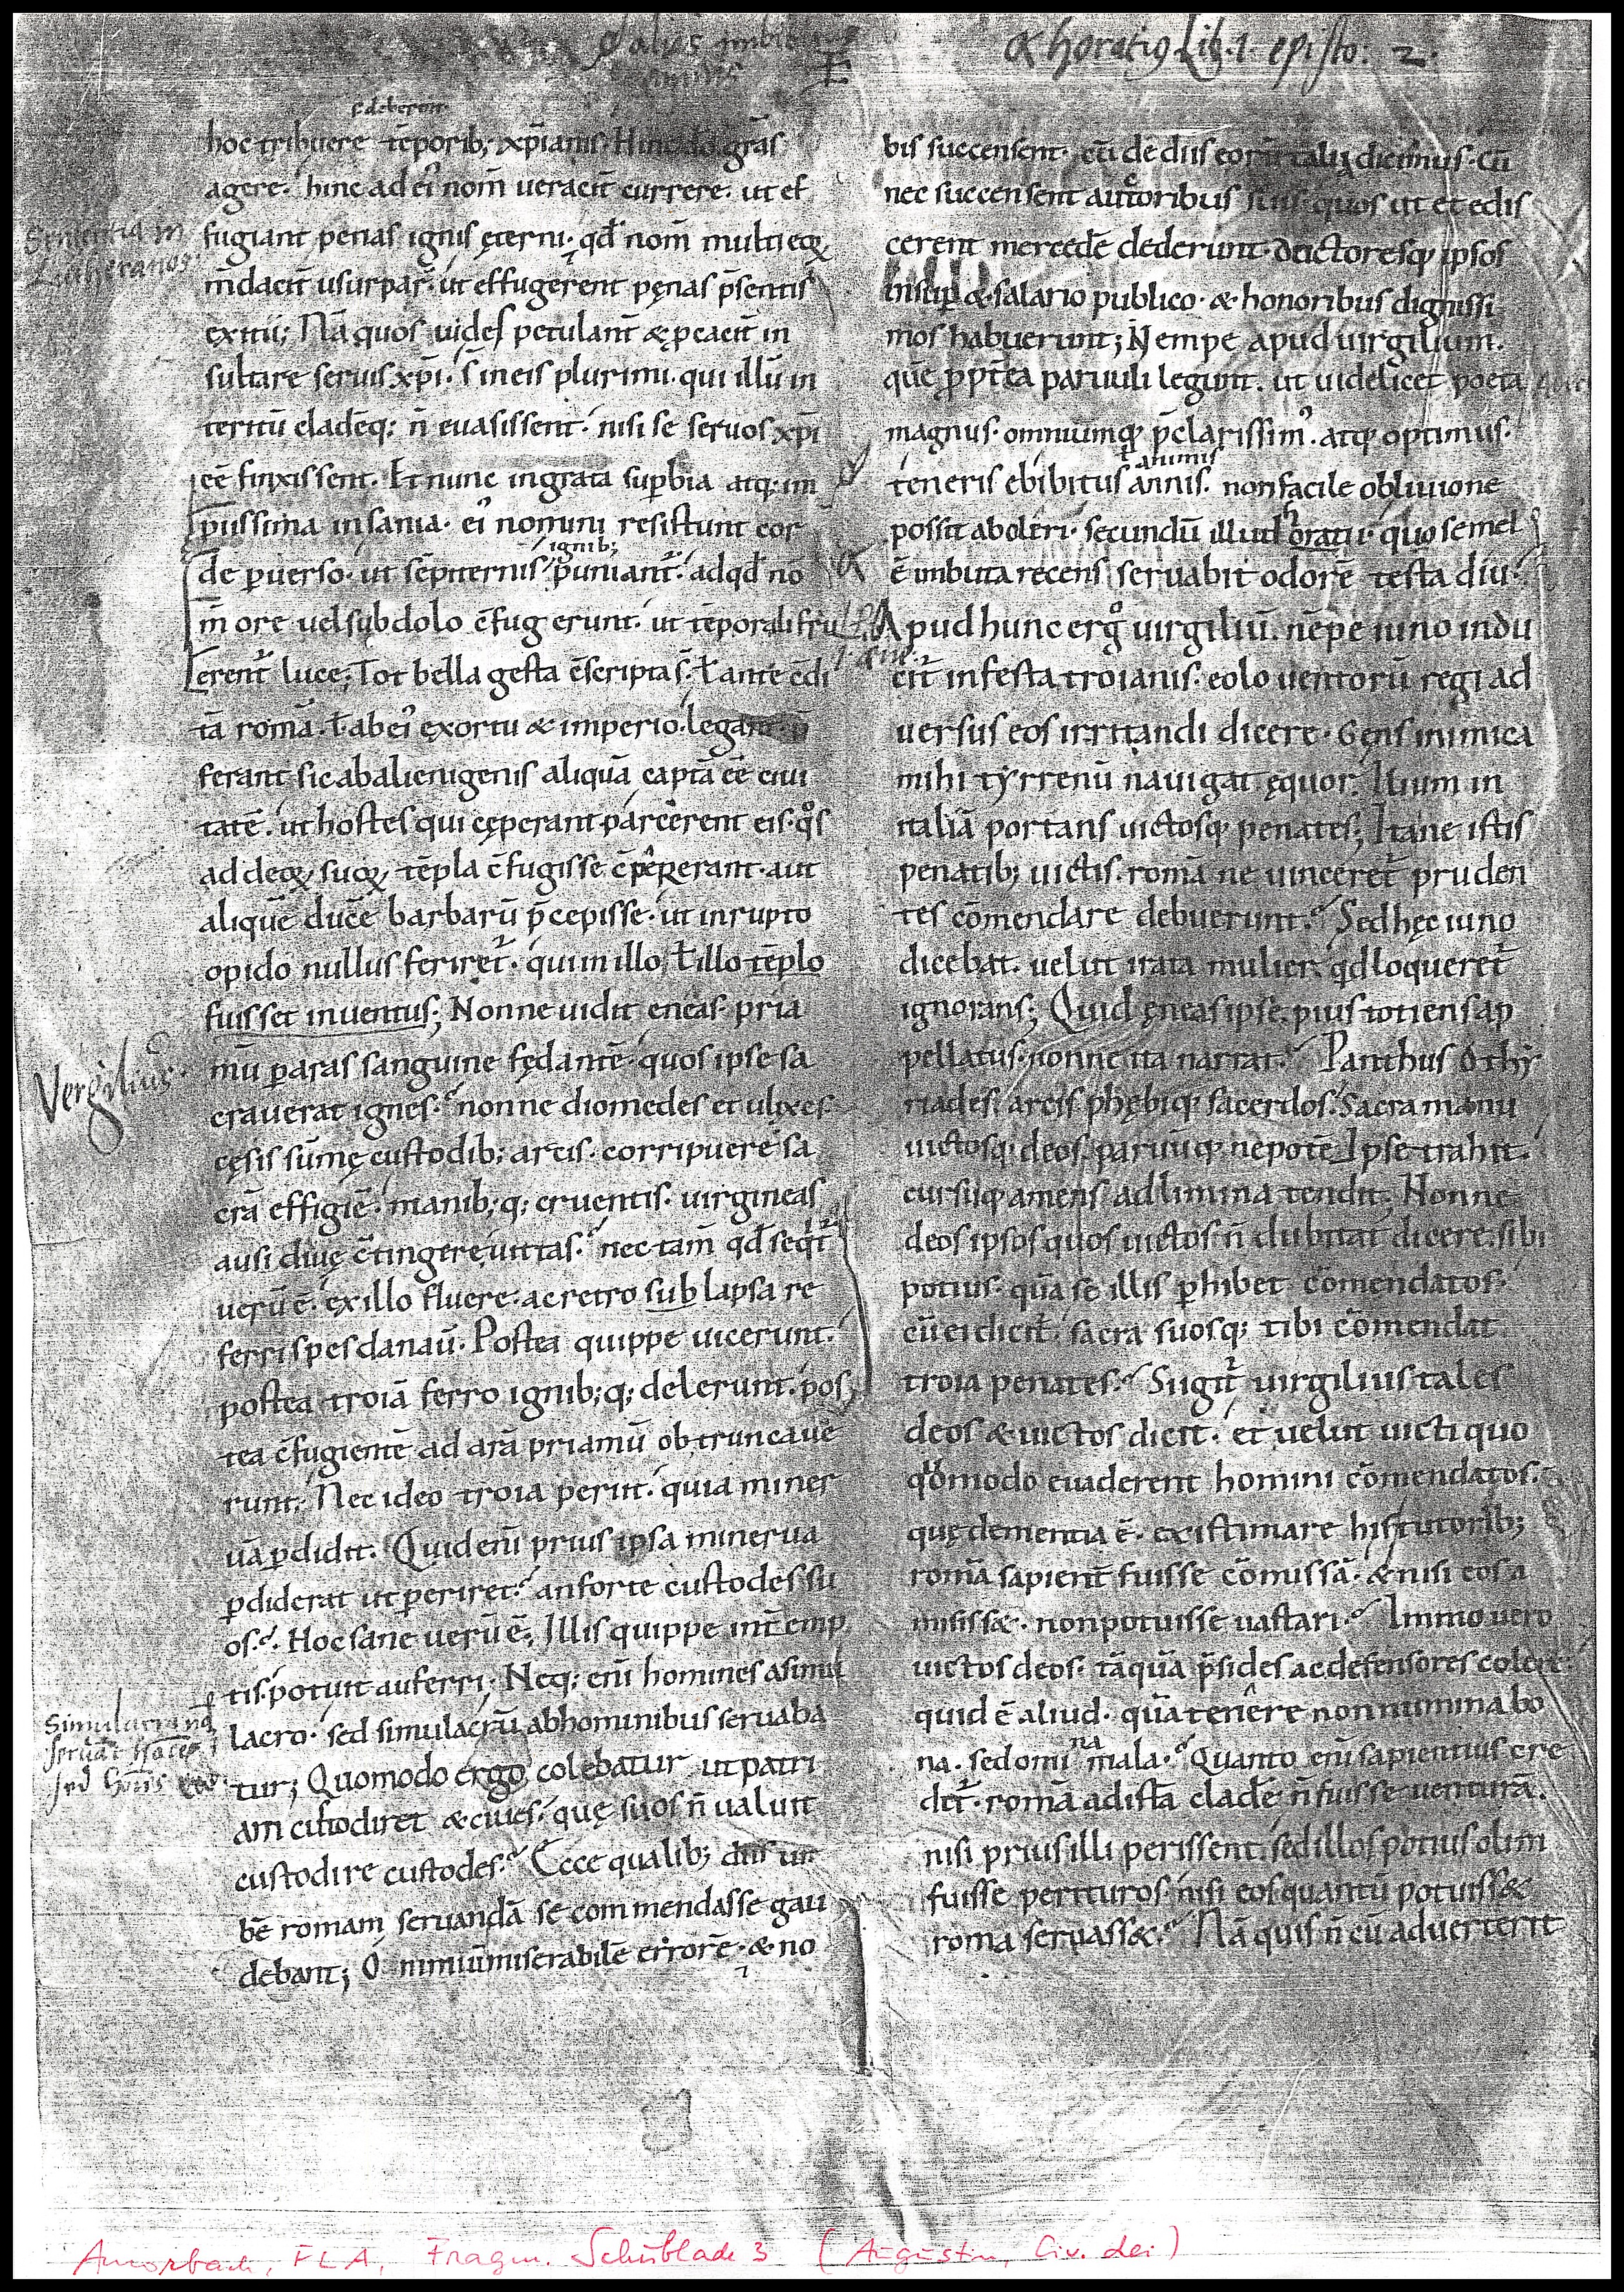 α horatiꝰ Lib. 1. episto: 2.
hoc tribuere tēporib; xp̄ianis. Hinc dō grās
agere. hinc ad eiꝰ nom̄ ueracit̄ currere. ut ef
fugiant penas ignis ęterni. qd̄ nom̄ multi eoꝝ
m̄dacit̄ usurpar̄. ut effugerent pęnas p̄sentis
exitii; Nā quos uides petulant̄ & ꝓcacit̄ in
sultare seruis xp̄i. s̄ in eis plurimi. qui illū in
teritū cladēq; n̄ euasissent. nisi se seruos xp̄i
eē finxissent. Et nunc ingrata suꝑbia atq; im
piissima insania. eiꝰ nomini resistunt cor
ignib;
de ꝑuerso. ut sēpiternis puniant᷑. ad qd̄ no
m̄ ore uel subdolo c̄fugerunt. ut tēporali fru
erent᷑ luce; Tot bella gesta c̄scripta s̄. ł ante c̄di
tā romā. ł ab eiꝰ exortu & imperio. legant. ꝓ
ferant sic ab alienigenis aliquā captā eē ciui
tatē. ut hostes qui cęperant parcerent eis. qͦs
ad deoꝝ suoꝝ tēpla c̄fugisse c̄pererant. aut
aliquē ducē barbarū p̄cepisse. ut inrupto
opido nullus feriret᷑. qui in illo ł illo tēplo
fuisset inuentus; Nonne uidit eneas pria
Vergilius.
mū ꝑ aras sanguine fędantē. quos ipse sa
crauerat ignes. nonne diomedes et ulixes
cęsis sūmę custodib; arcis. corripuere sa
crā effigiē. manib; q; cruentis. uirgineas
ausi diuę c̄tingere uittas. nec tam̄ qd̄ seqt᷑
uerū ē. ex illo fluere. ac retro sublapsa re
ferri spes danaū. Postea quippe uicerunt.
postea troiā ferro ignib; q; delerunt. pos
tea c̄fugientē ad arā priamū obtruncaue
runt; Nec ideo troia periit. quia miner
uā ꝑdidit. Quid eni prius ipsa minerua
ꝑdiderat ut periret. an forte custodes su
os. Hoc sane uerū ē; Illis quippe int̄emp
tis. potuit auferri; Neq; eni homines a simu
lacro. sed simulacrū ab hominibus seruaba
tur; Quomodo ergo colebatur ut patri
am custodiret & ciues. quę suos n̄ ualuit
custodire custodes. Ecce qualib; diis ur
bē romam seruandā se commendasse gau
debant; O nimiū miserabilē errorē. & no
bis succensent. cū de diis eorū talia dicimus. Cū
nec succensent auctoribus suis. quos ut et edis
cerent mercedē dederunt. doctoresq; ipsos
insuꝑ & salario publico. & honoribus dignissi
mos habuerunt; Nempe apud uirgilium.
quē ꝓpt̄ea paruuli legunt. ut uidelicet poeta
magnus. omniumq; p̄clarissimꝰ. atq; optimus.
animis
teneris ebibitus annis. non facile obliuione
possit aboleri. secundū illud oratii. quo semel
ē imbuta recens seruabit odorē testa diu.
Apud hunc ergͦ uirgiliū. nēpe iuno indu
cit᷑ infesta troianis. eolo uentorū regi ad
uersus eos irritandi dicere. Gens inimica
mihi tyrrenū nauigat ęquor. Ilium in
italiā portans uictosq; penates; Itane istis
penatib; uictis. romā ne uinceret᷑ pruden
tes cōmendare debuerunt. Sed hęc iuno
dicebat. uelut irata mulier. qd loqueret᷑
ignorans; Quid ęneas ipse. pius totiens ap
pellatus. nonne ita narrat. Panthus othy
riades. arcis phębiq; sacerdos. Sacra manu
uictosq; deos. paruūq; nepotē. Ipse trahit.
cursuq; amens ad limina tendit; Nonne
deos ipsos quos uictos n̄ dubitat dicere. sibi
potius. quā se illis ꝑhibet cōmendatos.
cū ei dicit᷑. sacra suosq; tibi cōmendat
troia penates. Si igit᷑ uirgilius tales
deos & uictos dicit. et uelut uicti quo
qͦmodo euaderent homini cōmendatos.
quę dementia ē. existimare his tutorib;
romā sapient̄ fuisse cōmissā. & nisi eos a
misiss&. non potuisse uastari. Immo uero
uictos deos. tāquā p̄sides ac defensores colere.
quid ē aliud. quā tenere non numina bo
na. sed omina mala. Quanto eni sapientius cre
det᷑. romā ad istā cladē n̄ fuisse uenturā.
nisi prius illi perissent. sed illos potius olim
fuisse perituros. nisi eos quantū potuiss&
roma seruass&. Nā quis n̄ cū aduerterit
Amorbach, FLA, Fragm. Schublade 3 (Augustin, Civ. dei)